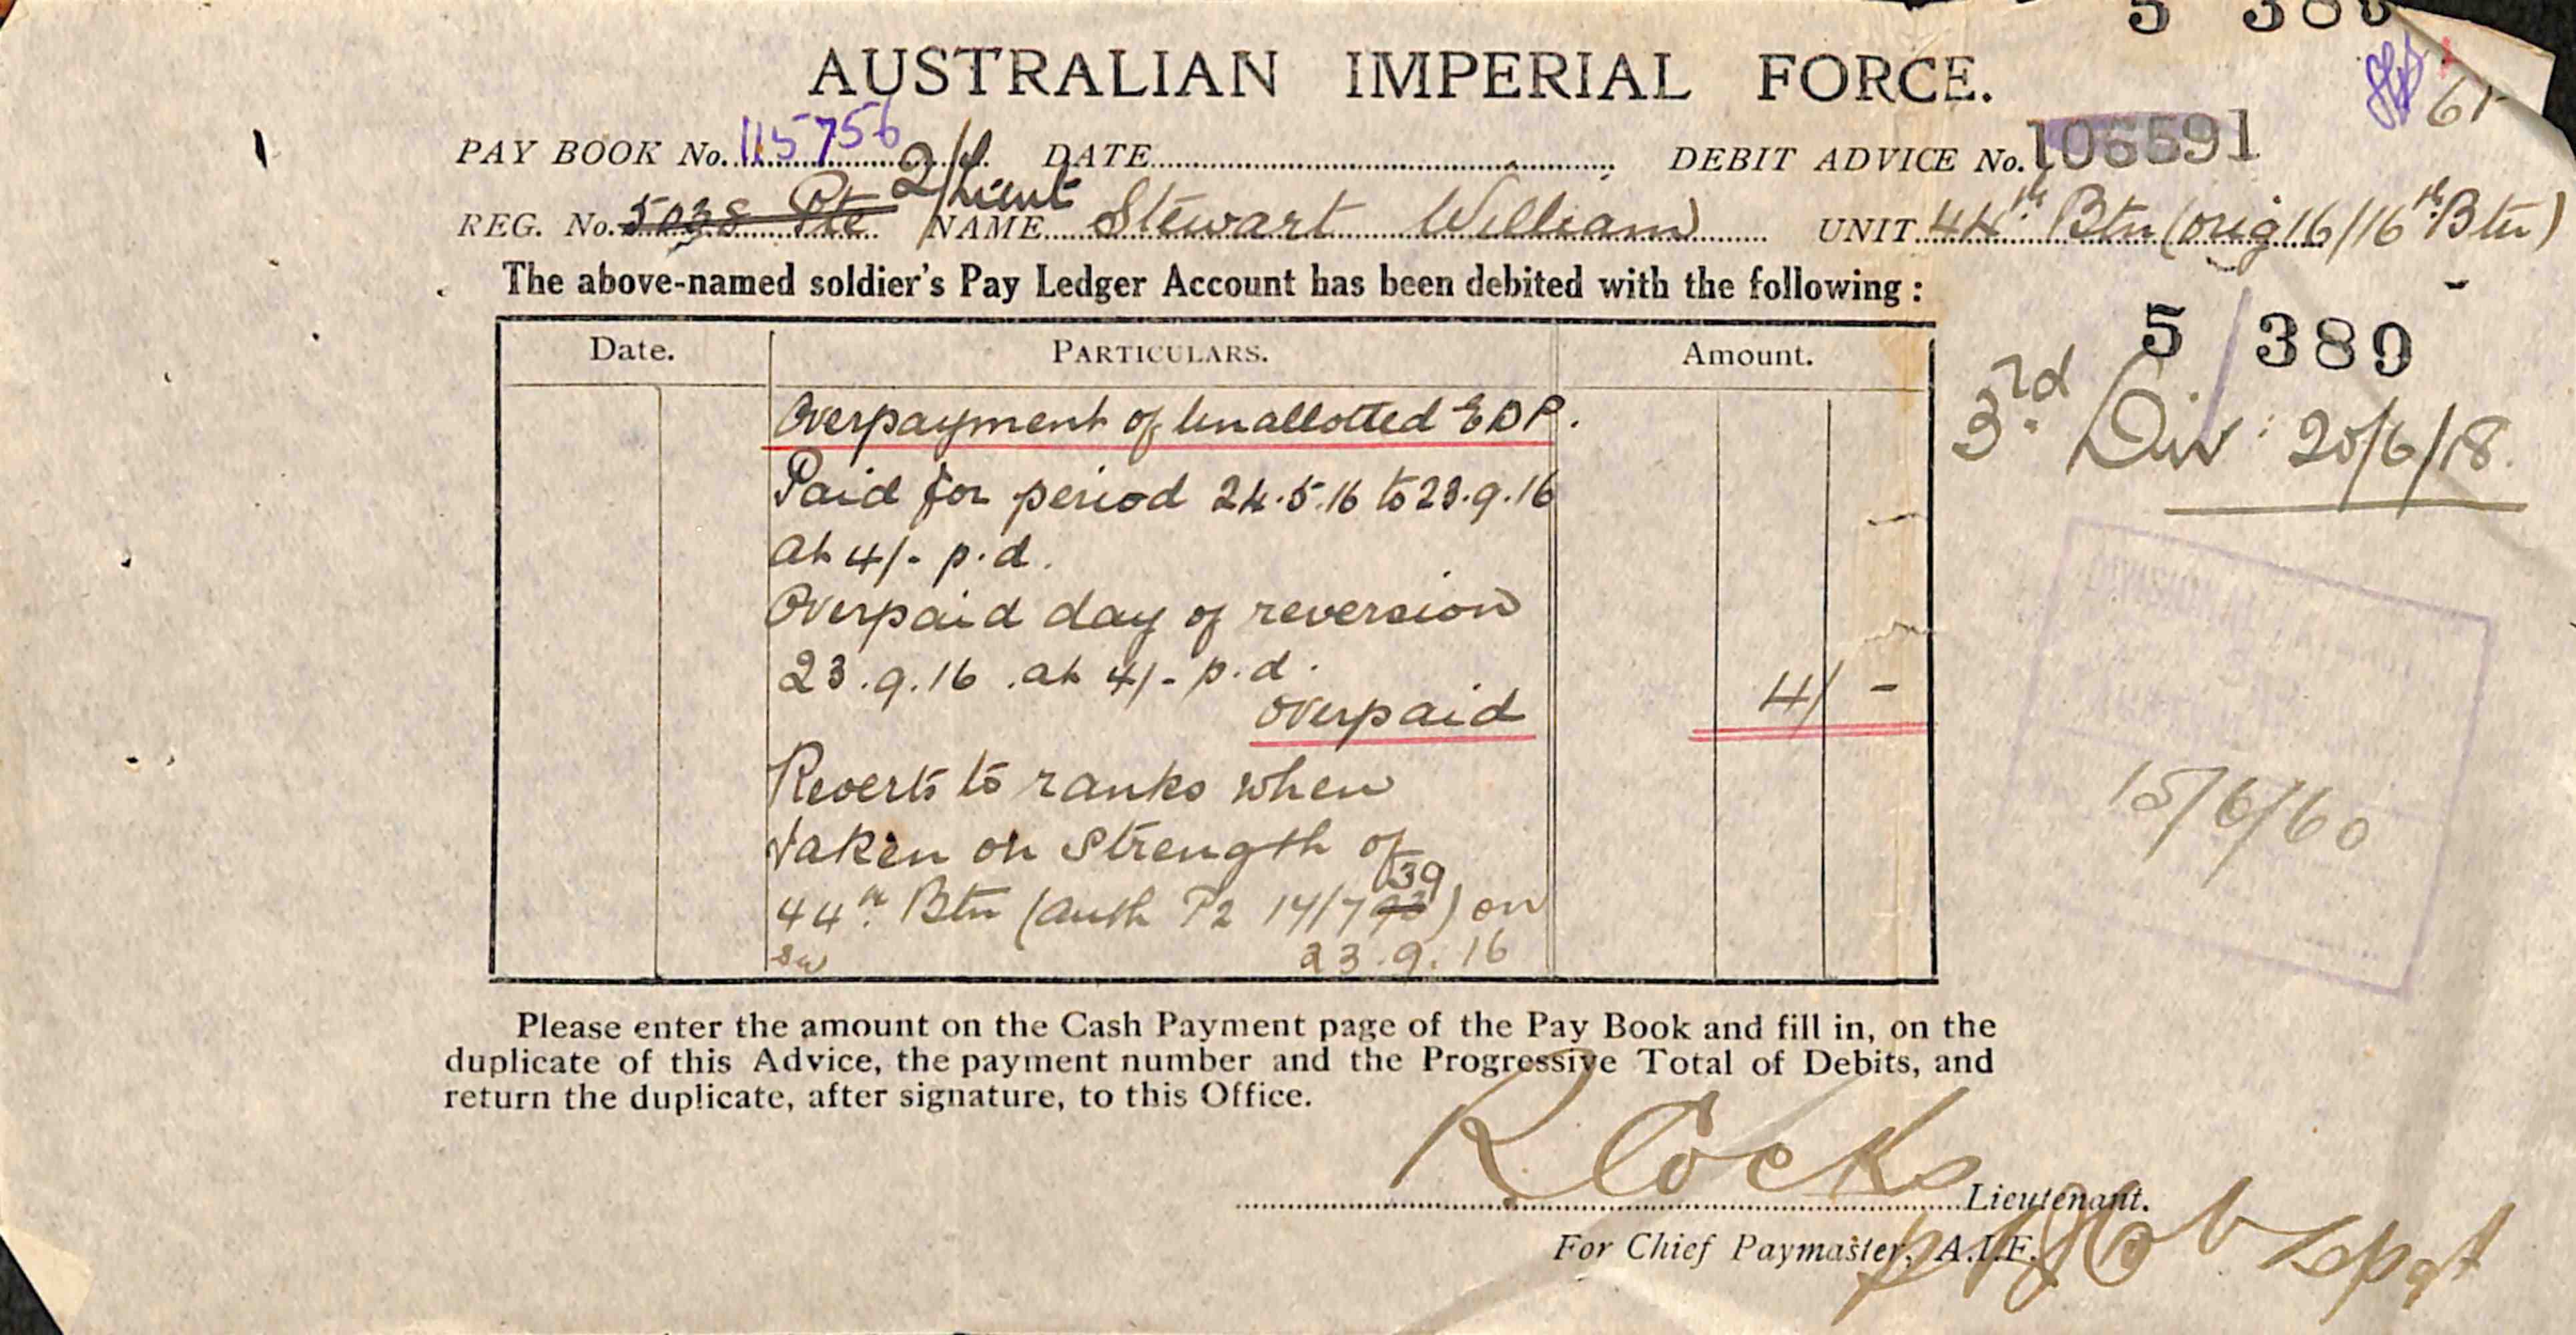 AUSTRALIAN IMPERIAL FORCE.
61
PAY BOOK No. 115756 DATE DEBIT ADVICE No. 106591
REG. No. 5038 Pte 2/Lieut NAME Stewart William UNIT 44th Btn (orig 16/16th Btn)
The above-named soldier's Pay Ledger Account has been debited with the following :
5 389
3rd Div 20/6/18.
Date. PARTICULARS. Amount.
Overpayment of Unallotted EDP.
Paid for period 24.5.16 to 23.9.16
at 4/- p.d.
Overpaid day of reversion
23.9.16 at 4/- p.d.
overpaid 4/ -
Reverts to ranks when
taken on strength of
44th Btn (auth P2 14/7 39) on
23.9.16
15/6/60
Please enter the amount on the Cash Payment page of the Pay Book and fill in, on the
duplicate of this Advice, the payment number and the Progressive Total of Debits, and
return the duplicate, after signature, to this Office.
R Cocks Lieutenant.
For Chief Paymaster, A.I.F.